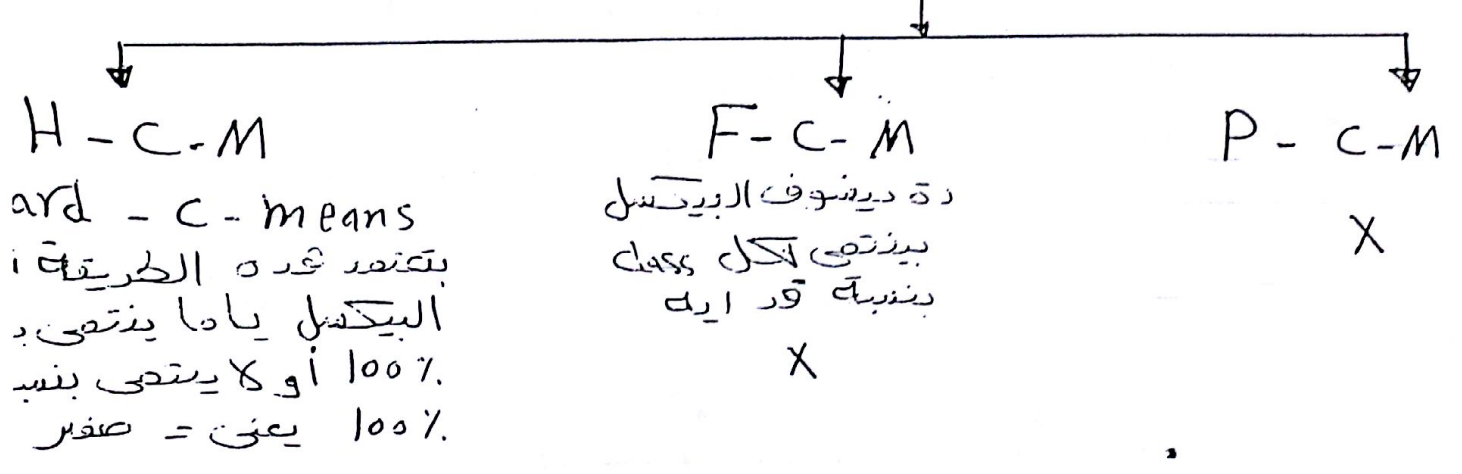 H - C - M
ard - C - means
بتعتمد هذه الطريقة
البيكسل ياما ينتمى ب
100 % أو لا ينتمى بنسـ
100 % يعنى = صفر
F - C - M
دة بيشوف البيكسل
بينتمى لكل class
بنسبة قد ايه
X
P - C - M
X